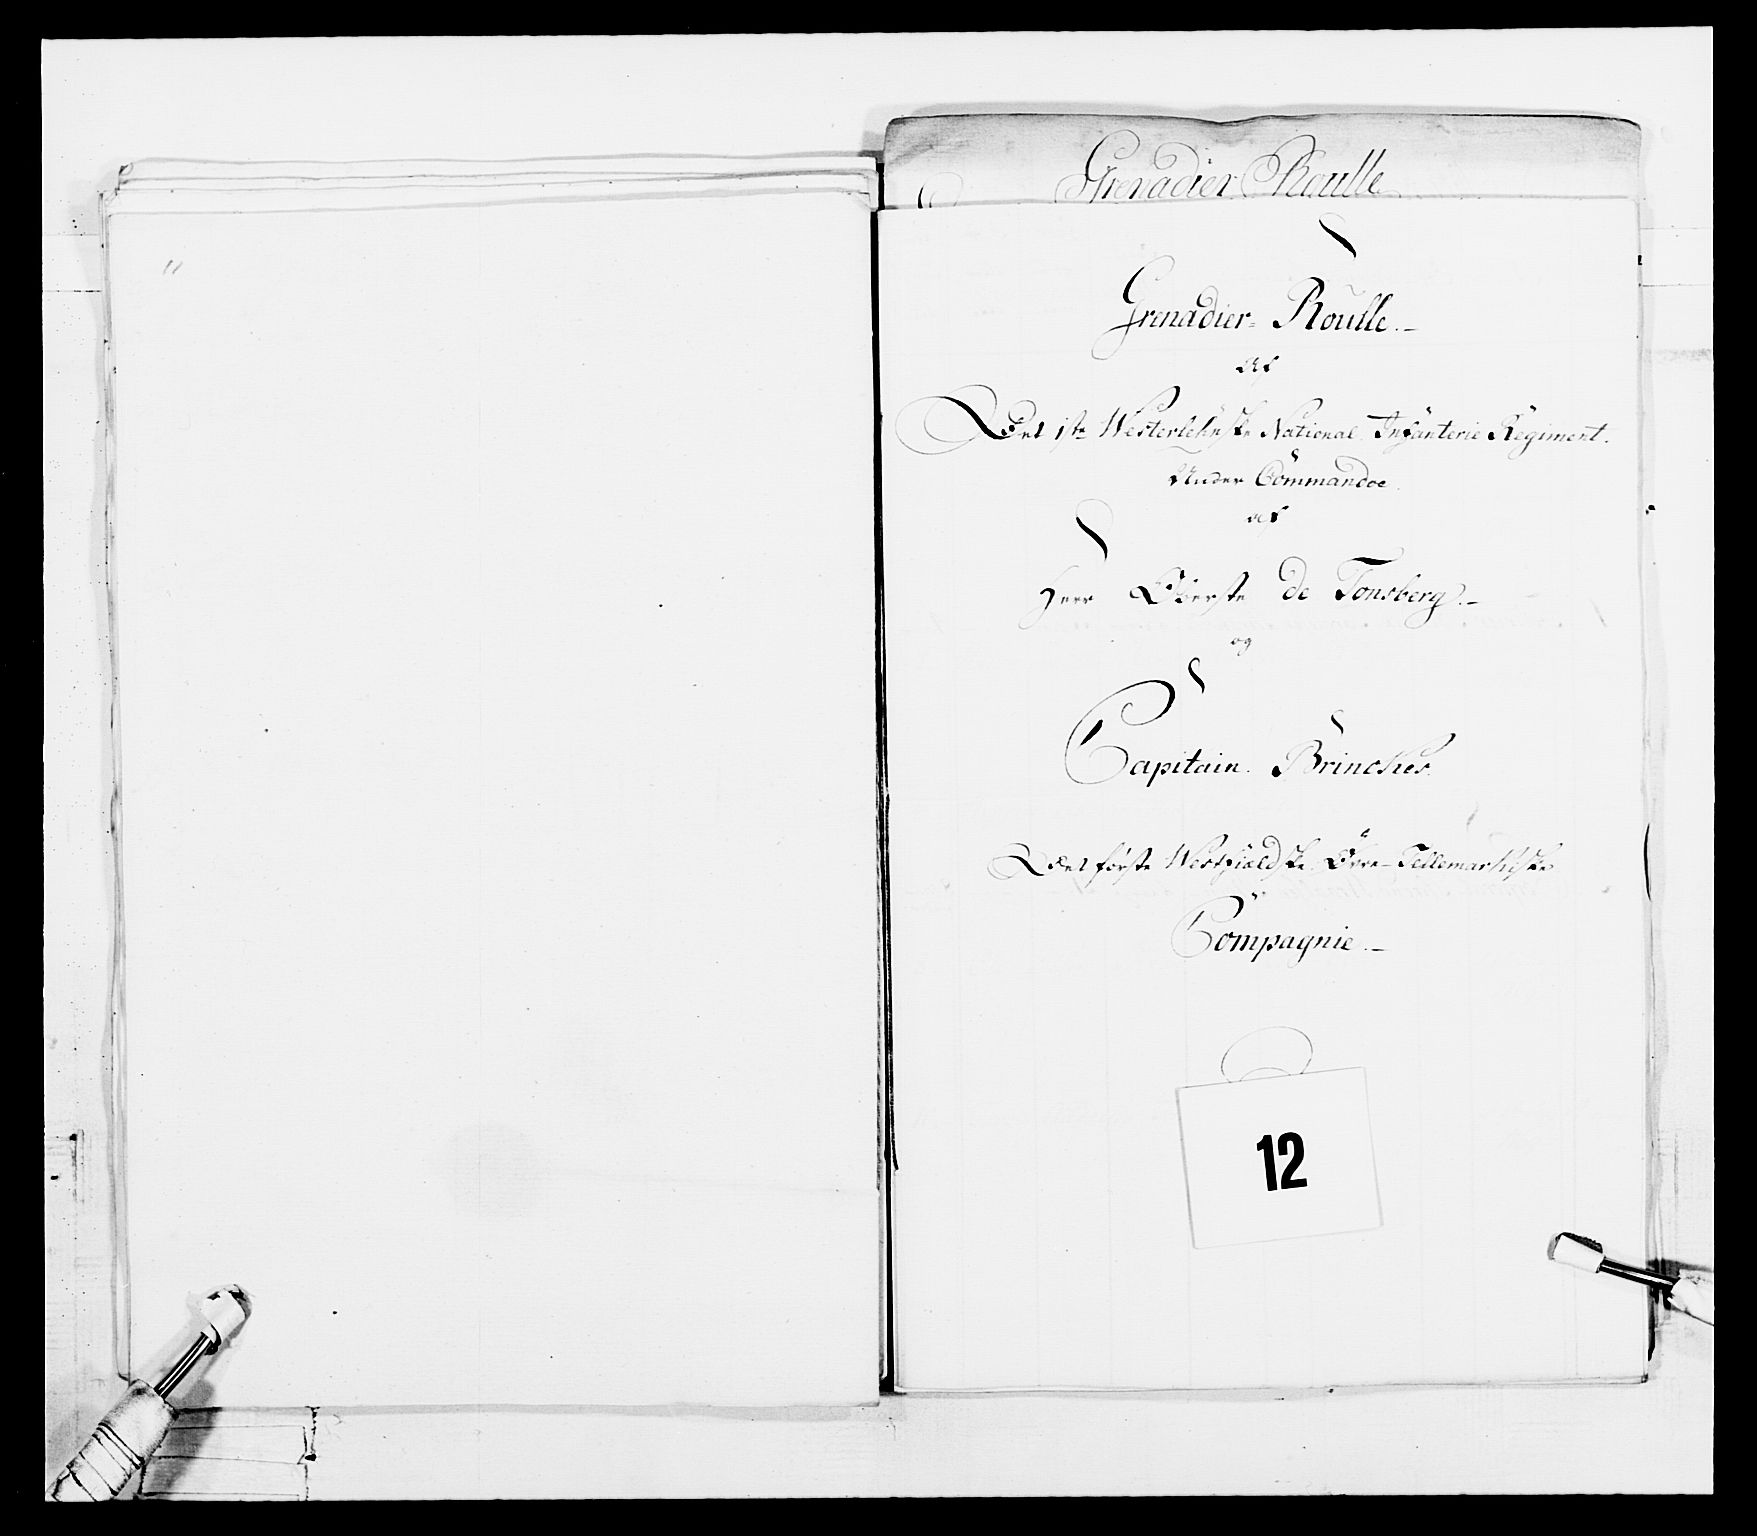 Grenadier Roulle
Grenadier= Roulle.
af
Det 1ste Westerlehnske National Infanterie Regiment.
Under Commandoe
af
Herr Oberste de Tonsberg.
og
Capitain Brinckes
Det første Westfieldske Øvre-Tellemarkiske
Compagnie.
12